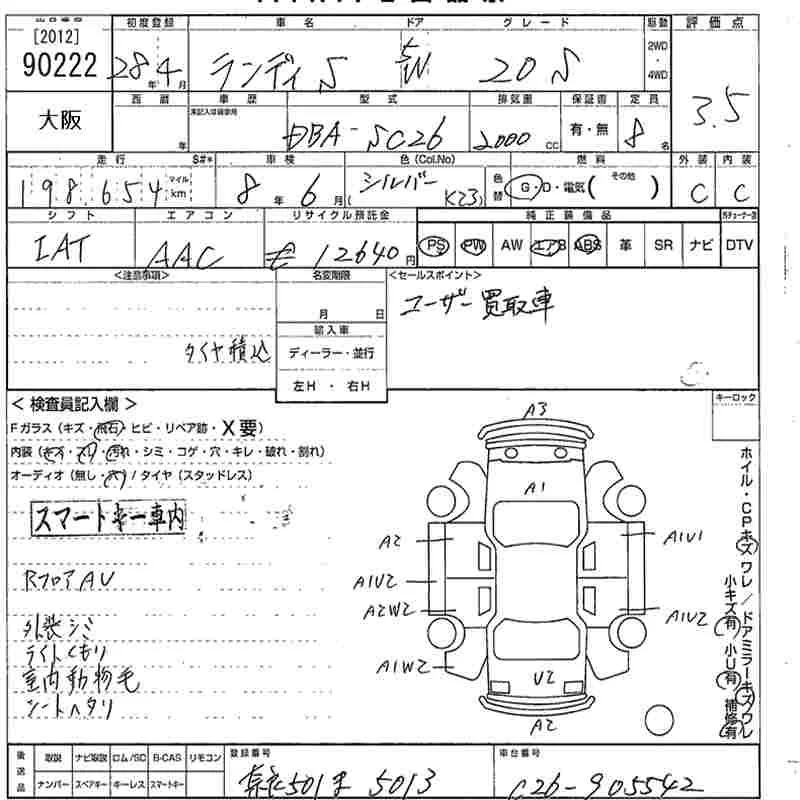 出品番号 初度登録 車名 ドア グレード 駆動 評価点
[2012]
90222 28年4月 ランディS 5W 20S 2WD・4WD 3.5
大阪 西暦 車歴 型式 排気量 保証書 定員
年 未記入は自家用 DBA-SC26 2000cc 有・無 8名
走行 S#* 車検 色(Col.No) 燃料 外装 内装
198654 マイル km 8年6月 シルバー(K23) 色替 G・D・電気(その他) C C
シフト エアコン リサイクル預託金 純正装備品
IAT AAC 12640円 PS PW AW エアB ABS 革 SR ナビ DTV
<注意事項> 名変期限 <セールスポイント>
月 日 ユーザー買取車
輸入車
タイヤ積込 ディーラー・並行
左H・右H
<検査員記入欄> キーロック
Fガラス(キズ・飛石・ヒビ・リペア跡・X要)
内装(キズ・スリ・汚れ・シミ・コゲ・穴・キレ・破れ・割れ)
オーディオ(無し・穴)/タイヤ(スタッドレス)
スマートキー車内
RフロアAU
外装シミ
ライトくもり
室内動物毛
シートヘタリ
A3
A1
A2 A1U1
A1U2
A2W2 A1U2
A1W2
U2
A2
ホイル・CPキズワレ/ドアミラーキズワレ
小キズ有 小U有 補修有
後送品 取説 ナビ取説 ロム/SD B-CAS リモコン 登録番号 車台番号
ナンバー スペアキー キーレス スマートキー 501 5013 C26-905542